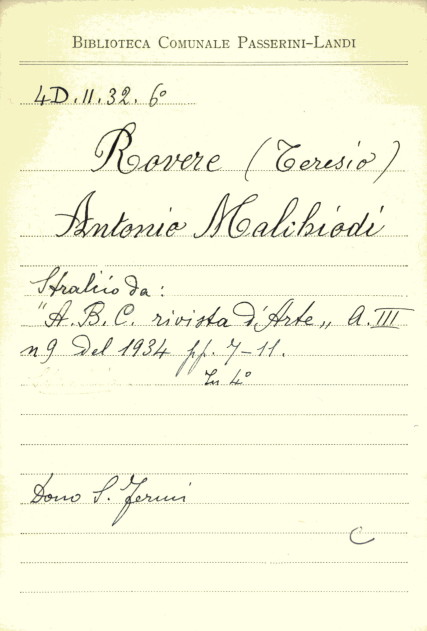 BIBLIOTECA COMUNALE PASSERINI-LANDI
4D.II.32.6°
Rovere (Teresio)
Antonio Malchiodi
Stralcio da:
"A.B.C. rivista d'Arte„ A. III
n 9 del 1934 pp. 7-11.
In 4°
Dono S. Fermi
C